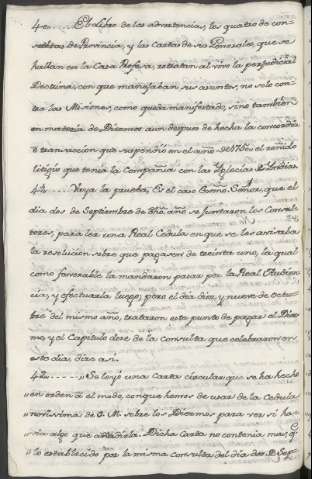 40......El Libro de las advertencias, los quatro de con-
sultas de Provincia, y las Cartas de sus Generales, que se
hallan en la Casa Profesa, retratan al vivo la perjudicial
Doctrina, con que manejaban sus asuntos, no solo con-
tra las Misiones, como queda manifestado, sino tambien
en materia de Diezmos aun despues de hecha la concordia
ò transaccion que suspendió en el año de el reñido
litigio que tenia la Compañia con las Yglesias de Yndias
41......Vaya la prueba; Es el caso Exmo. Señor, que el
dia dos de Septiembre de dho año se juntaron los Consul-
tores, para leer una Real Cedula en que se les avisaba
la resolucion sobre que pagasen de treinta uno, la qual
como favorable la mandaron pasar por la Real Audien-
cia, y efectuarla luego; pero el dia diez y nueve de octu-
bre del mismo año, trataron este punto de pagar el Diez-
mo, y el Capitulo doce de la consulta que celebraron en
este dia dice asi.
42......,,Se leyó una carta circular, que se ha hecho
,,en orden à el modo, conque hemos de usar de la Cedula
,,novissima de S. M. sobre los Diezmos para ver si ha-
,,via algo que añadirla. Dicha Carta no contenia mas q.e
,,lo establecido por la misma consulta del dia dos D. Sep.e